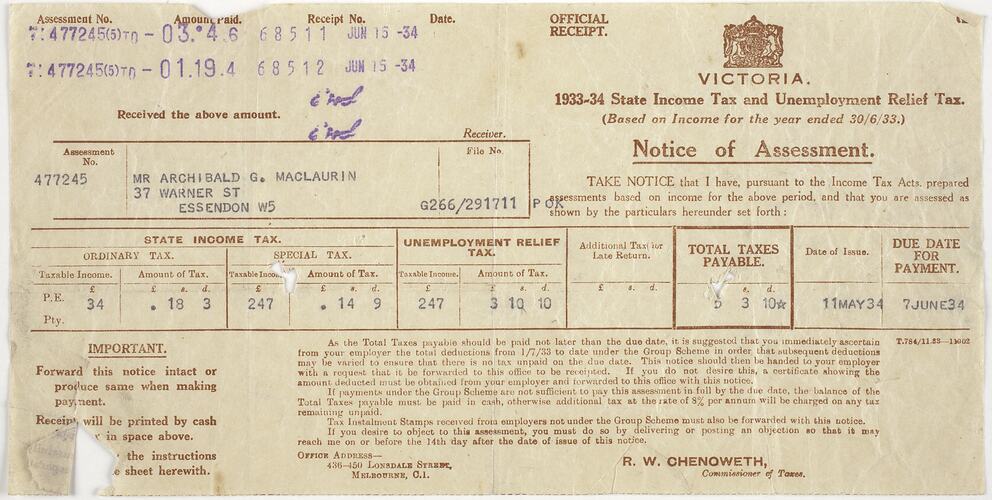 Assessment No. Amount Paid. Receipt No. Date.
477245(5)TO - 03.°4.6 68511 JUN 15 -34
477245(5)TO - 01.19.4 68512 JUN 15 -34
Received the above amount.
Receiver.
Assessment No. File No.
477245 MR ARCHIBALD G. MACLAURIN
37 WARNER ST
ESSENDON W5 G266/291711 P OK
OFFICIAL
RECEIPT.
VICTORIA.
1933-34 State Income Tax and Unemployment Relief Tax.
(Based on Income for the year ended 30/6/33.)
Notice of Assessment.
TAKE NOTICE that I have, pursuant to the Income Tax Acts, prepared
assessments based on income for the above period, and that you are assessed as
shown by the particulars hereunder set forth:
STATE INCOME TAX. UNEMPLOYMENT RELIEF TAX. Additional Tax for Late Return. TOTAL TAXES PAYABLE. Date of Issue. DUE DATE FOR PAYMENT.
ORDINARY TAX. SPECIAL TAX.
Taxable Income. Amount of Tax. Taxable Amount of Tax. Taxable Income. Amount of Tax.
£ £ s. d. £ £ s. d. £ £ s. d. £ s. d. s. d.
P.E. 34 . 18 3 247 . 14 9 247 3 10 10 5 3 10☆ 11MAY34 7JUNE34
Pty.
IMPORTANT.
Forward this notice intact or
produce same when making
payment.
Receipt will be printed by cash
in space above.
the instructions
sheet herewith.
As the Total Taxes payable should be paid not later than the due date, it is suggested that you immediately ascertain
from your employer the total deductions from 1/7/33 to date under the Group Scheme in order that subsequent deductions
may be varied to ensure that there is no tax unpaid on the due date. This notice should then be handed to your employer
with a request that it be forwarded to this office to be receipted. If you do not desire this, a certificate showing the
amount deducted must be obtained from your employer and forwarded to this office with this notice.
If payments under the Group Scheme are not sufficient to pay this assessment in full by the due date, the balance of the
Total Taxes payable must be paid in cash, otherwise additional tax at the rate of 8% per annum will be charged on any tax
remaining unpaid.
Tax Instalment Stamps received from employers not under the Group Scheme must also be forwarded with this notice.
If you desire to object to this assessment, you must do so by delivering or posting an objection so that it may
reach me on or before the 14th day after the date of issue of this notice.
T.784/11.33—11002
OFFICE ADDRESS—
436-450 LONSDALE STREET,
MELBOURNE, C.1.
R. W. CHENOWETH,
Commissioner of Taxes.